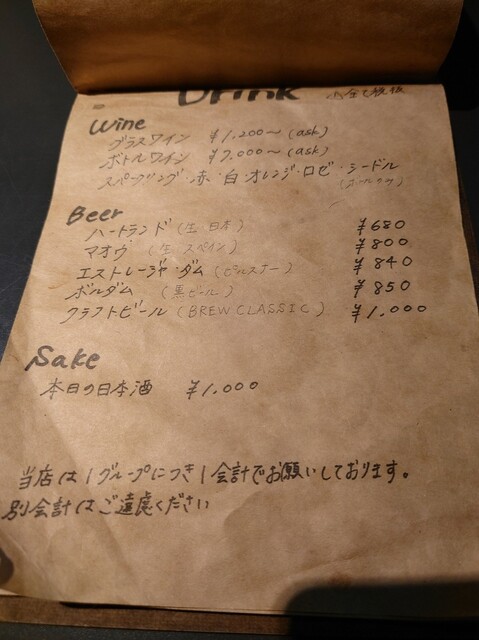 Drink
Wine
グラスワイン ¥1,200〜 (ask)
ボトルワイン ¥7,000〜 (ask)
スパークリング・赤・白・オレンジ・ロゼ・シードル
Beer
ハートランド (生 日本) ¥680
マオウ (生 スペイン) ¥800
エストレージャ・ダム (ピルスナー) ¥840
ボルダム (黒ビール) ¥850
クラフトビール (BREW CLASSIC) ¥1,000
Sake
本日の日本酒 ¥1,000
当店は1グループにつき1会計でお願いしております。
別会計はご遠慮ください